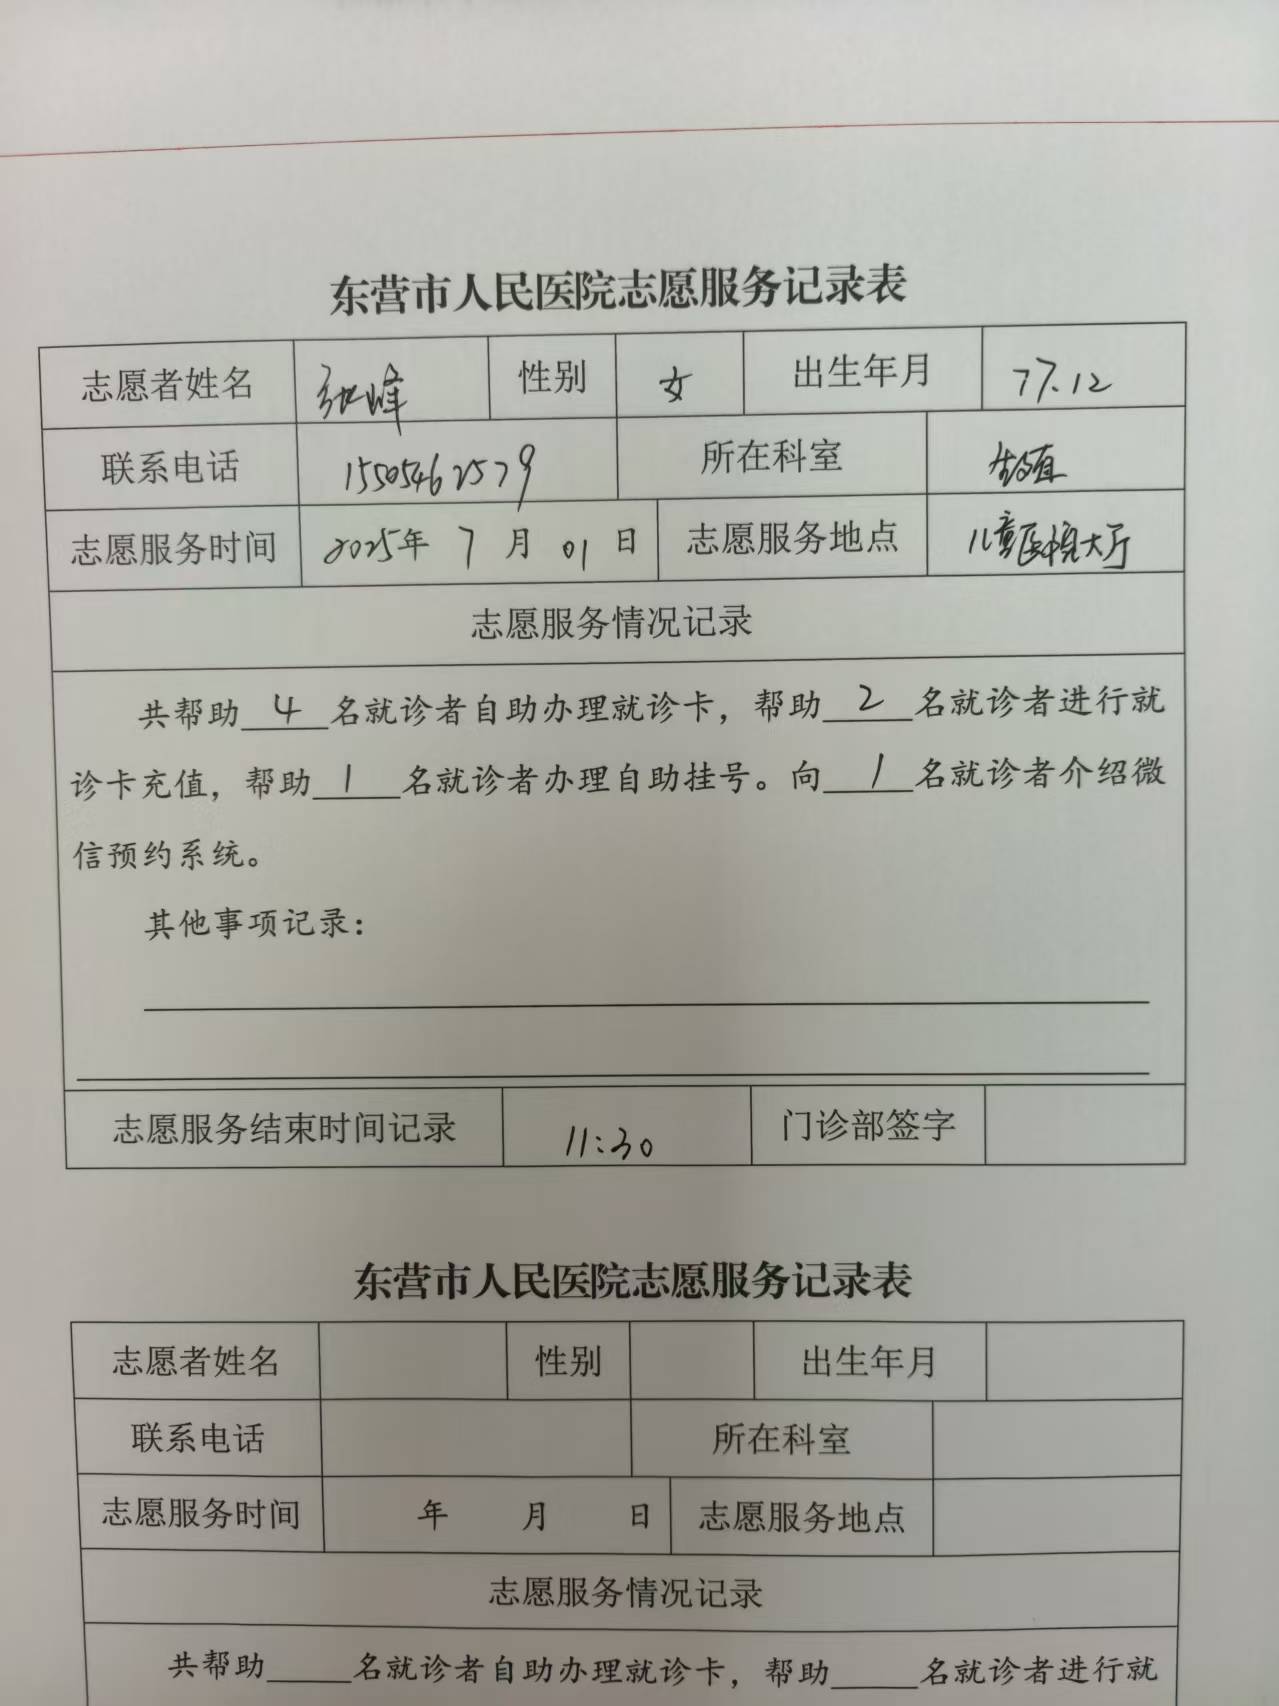 东营市人民医院志愿服务记录表
志愿者姓名 张峰 性别 女 出生年月 77.12
联系电话 15505462579 所在科室 生殖
志愿服务时间 2025年 7 月 01 日 志愿服务地点 儿童医院大厅
志愿服务情况记录
共帮助 4 名就诊者自助办理就诊卡，帮助 2 名就诊者进行就
诊卡充值，帮助 1 名就诊者办理自助挂号。向 1 名就诊者介绍微
信预约系统。
其他事项记录：
志愿服务结束时间记录 11:30 门诊部签字
东营市人民医院志愿服务记录表
志愿者姓名 性别 出生年月
联系电话 所在科室
志愿服务时间 年 月 日 志愿服务地点
志愿服务情况记录
共帮助_____名就诊者自助办理就诊卡，帮助_____名就诊者进行就